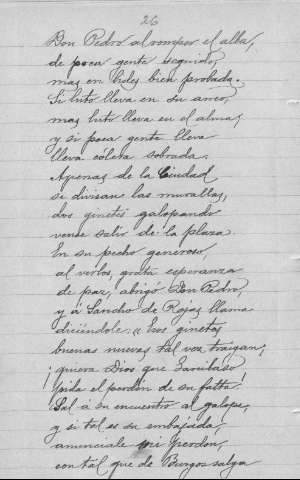 26
Don Pedro al romper el alba,
de poca gente seguido,
mas en lides bien probada.
Si luto lleva en su arnés,
mas luto lleva en el alma,
y si poca gente lleva
lleva cólera sobrada.
Apenas de la Ciudad
se divisan las murallas,
dos ginetes galopando
vense salir de la plaza.
En su pecho generoso,
al verlos, grata esperanza
de paz, abrigó Don Pedro,
y á Sancho de Rojas llama
diciéndole: "Esos ginetes,
buenas nuevas tal vez traigan;
¡quiera Dios que
pida el perdón de su falta!
Sal á su encuentro al galope,
y si tal es su embajada,
anunciale mi perdon,
con tal que de Burgos salga